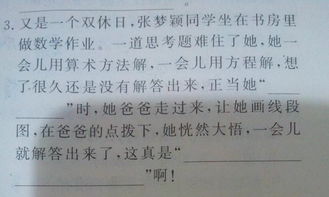 3.又是一个双休日,张梦颖同学坐在书房里
做数学作业。一道思考题难住了她,她一
会儿用算术方法解,一会儿用方程解,想
了很久还是没有解答出来,正当她“______
______”时,她爸爸走过来,让她画线段
图,在爸爸的点拨下,她恍然大悟,一会儿
就解答出来了,这真是“____________
____________”啊!